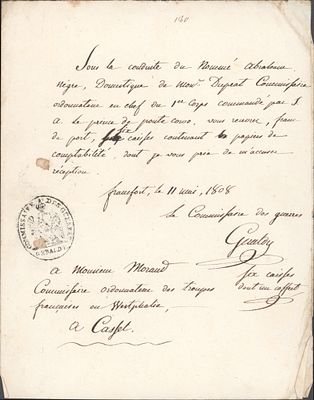 140
Sous la conduite du Nommé Abraham
nègre, Domestique de Monr. Duprat Commissaire
ordonnateur en chef du 1er Corps commandé par S.
A. le prince de ponte corvo, vous recevrez, franc
de port, six caisses contenant les papiers de
comptabilité, dont je vous prie de m'accuser
réception
francfort, le 11 mai, 1808
le Commissaire des guerres
Geraldy
COMMISSAIRE DES GUERRES
GERALDY
à Monsieur Morand
Commissaire ordonnateur des troupes
françaises en Westphalie,
à Cassel
six caisses
dont un coffret